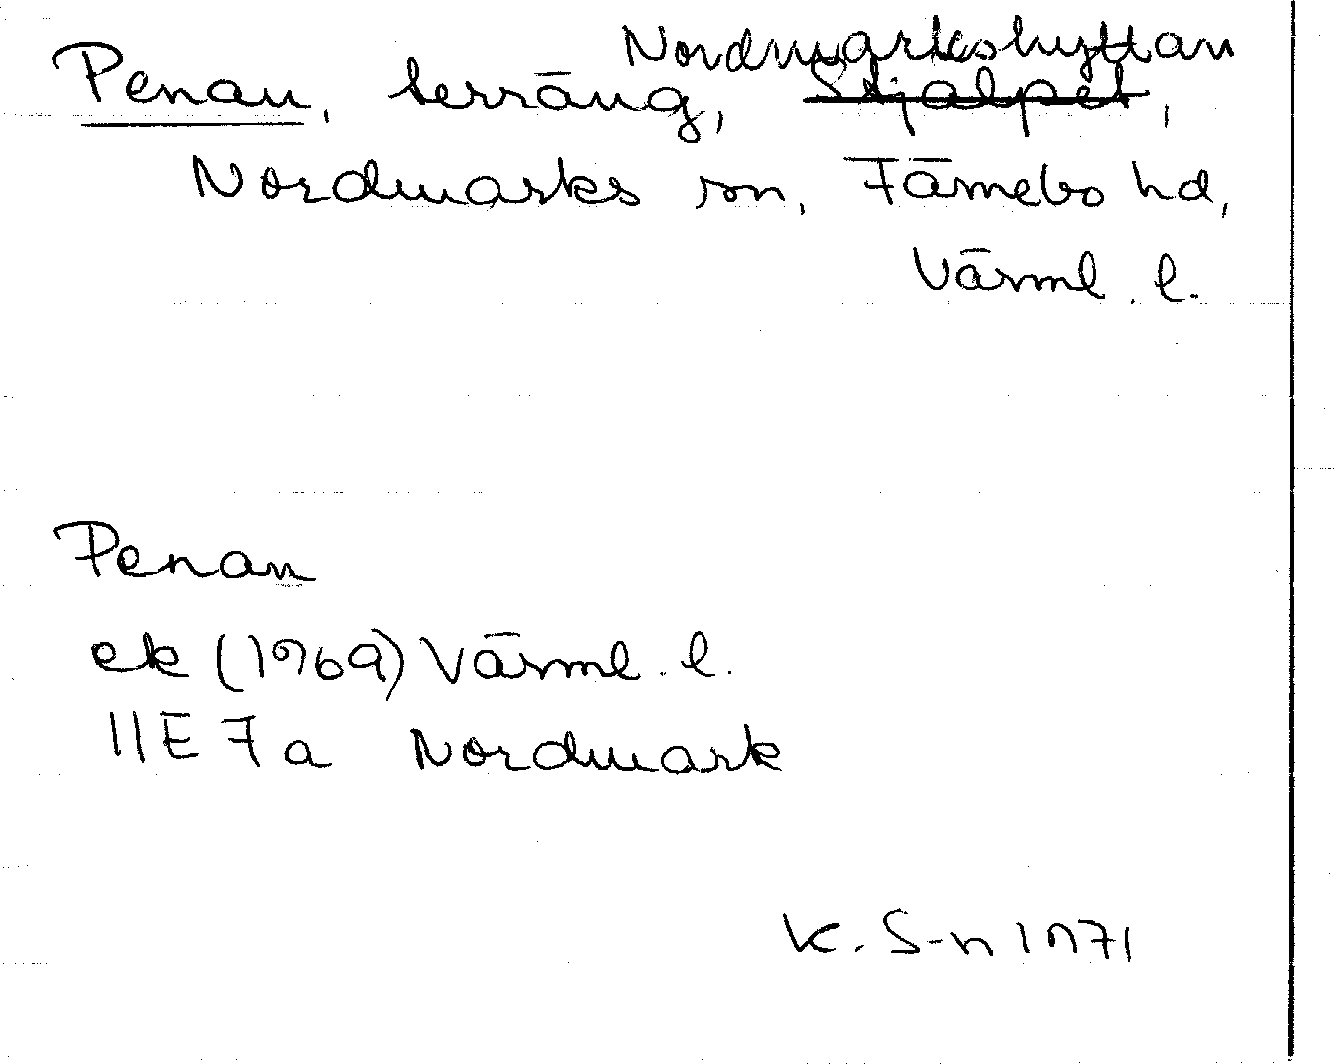 Nordmarkshyttan
Penan, terräng, Stjälpet,
Nordmarks sn, Färnebo hd,
Värml. l.
Penan
ek (1969) Värml. l.
11E 7a Nordmark
K. S-n 1971